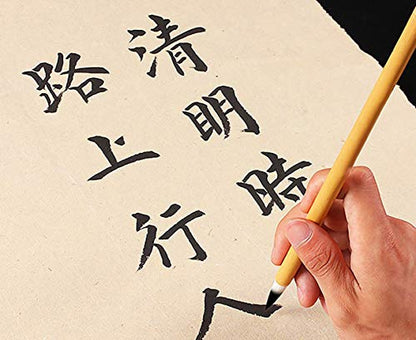 清明時
路上行人